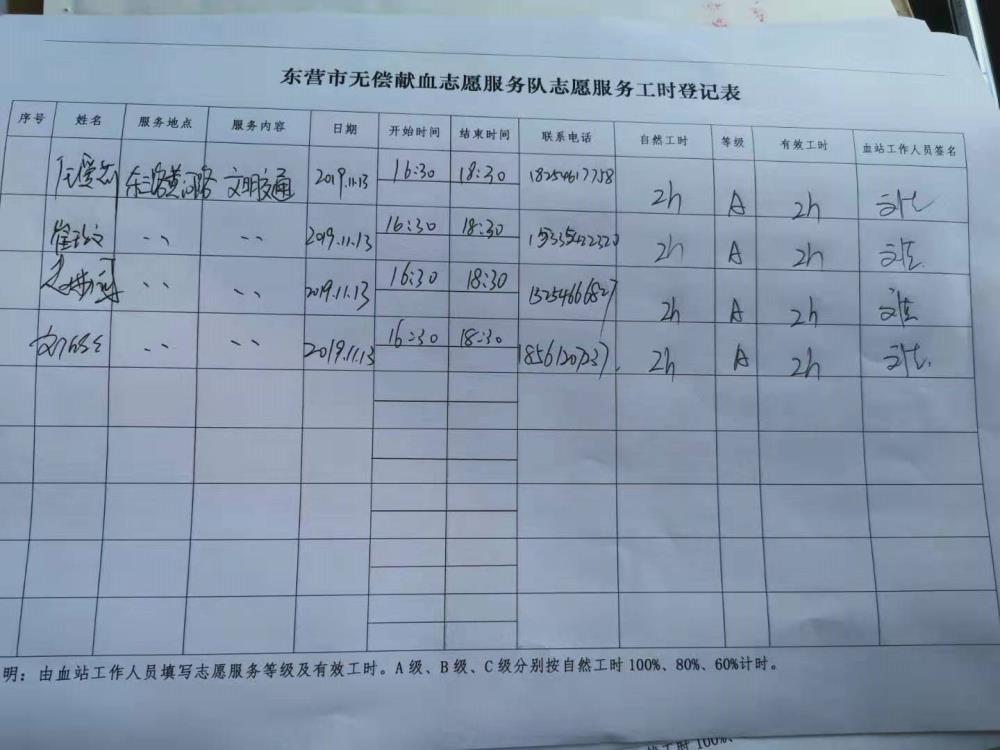 东营市无偿献血志愿服务队志愿服务工时登记表
序号 姓名 服务地点 服务内容 日期 开始时间 结束时间 联系电话 自然工时 等级 有效工时 血站工作人员签名
东二路黄河路 文明交通 2019.11.13 16:30 18:30 18254617758 2h A 2h
、、 、、 2019.11.13 16:30 18:30 2h A 2h
、、 、、 2019.11.13 16:30 18:30 15254666827 2h A 2h
、、 、、 2019.11.13 16:30 18:30 2h A 2h
明：由血站工作人员填写志愿服务等级及有效工时。A级、B级、C级分别按自然工时100%、80%、60%计时。